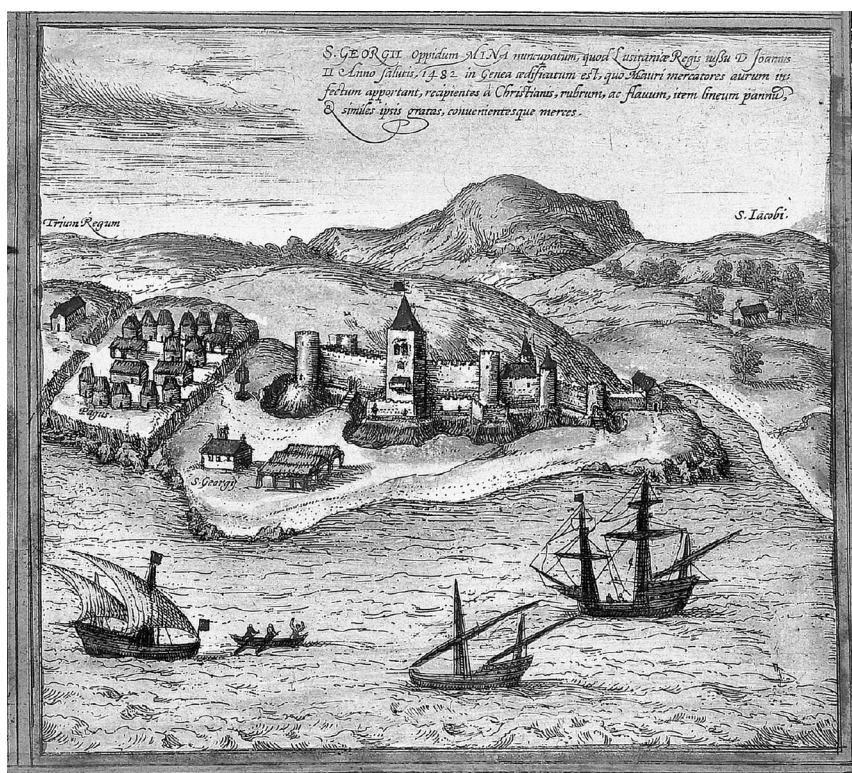 S. GEORGII Oppidum MINA nuncupatum, quod Lusitaniæ Regis iussu D Joannis
II Anno salutis, 1482 in Genea ædificatum est, quo Mauri mercatores aurum in-
fectum apportant, recipientes à Christianis, rubrum, ac flauum, item lineum pannũ,
& similes ipsis gratas, convenientesque merces.
Trium Regum
S. Iãcobi.
Pagus.
S. Georgij